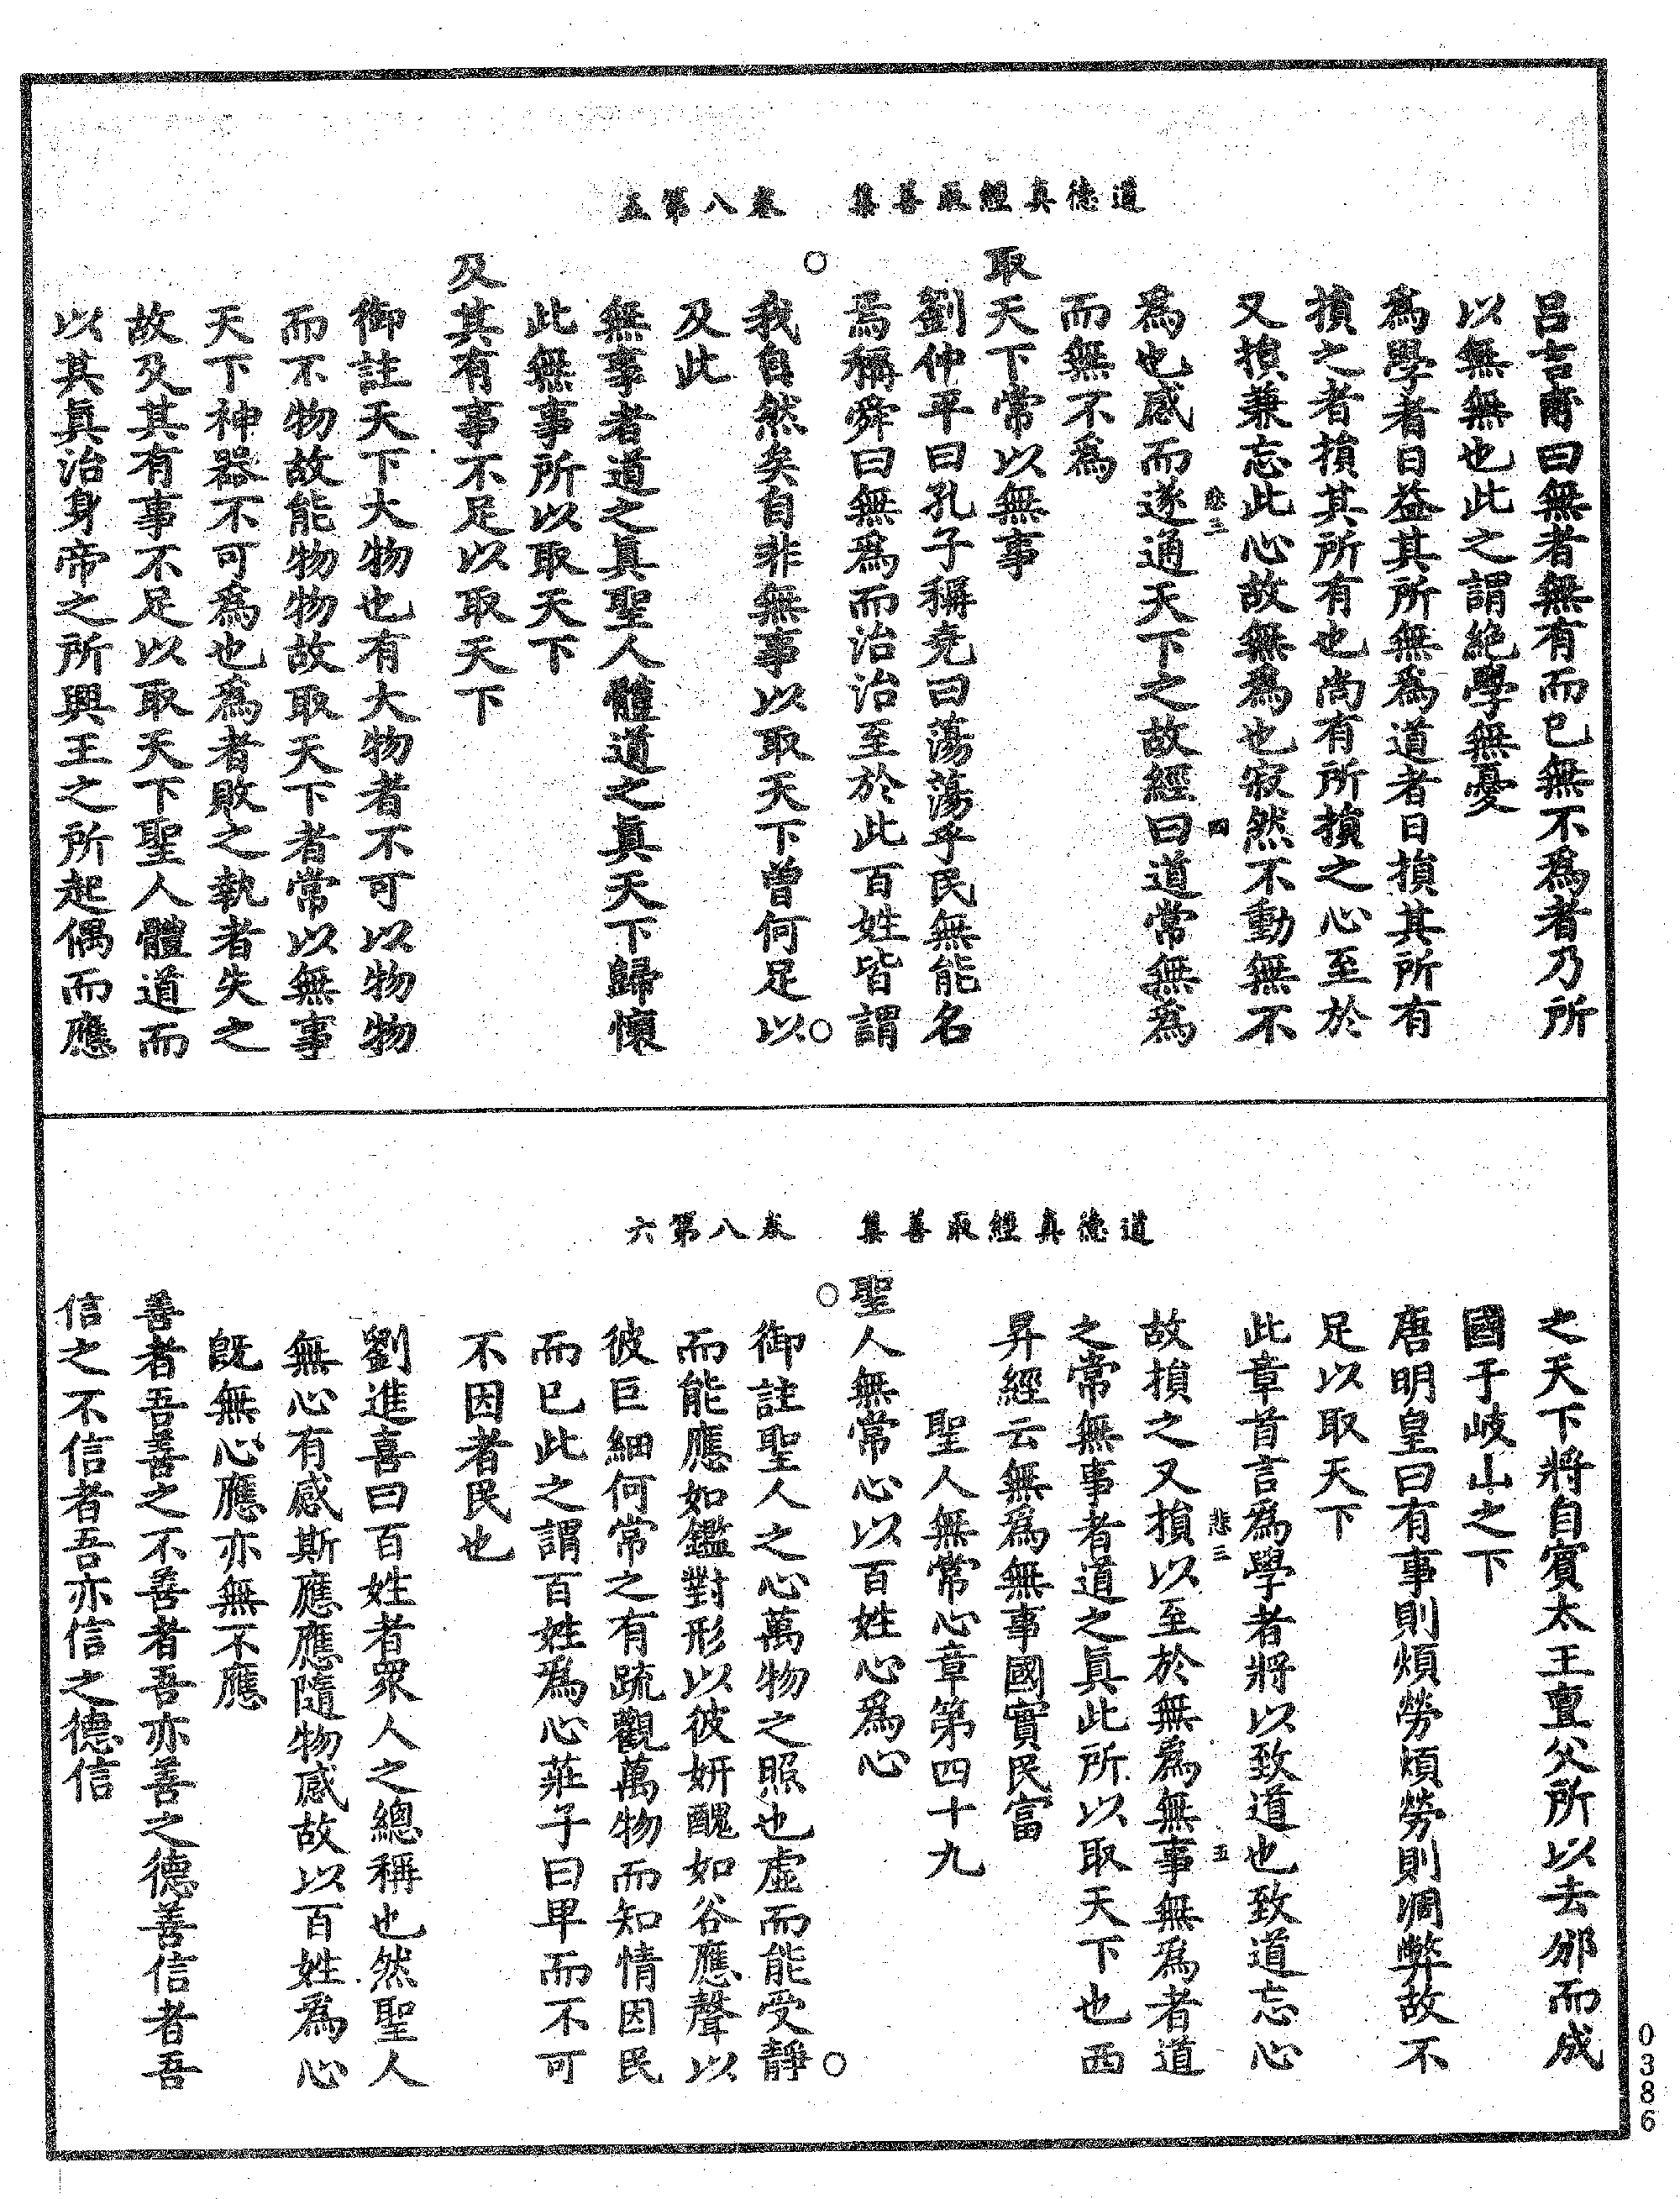 道德眞經取善集　卷八第五
呂吉甫曰無者無有而已無不爲者乃所
以無無也此之謂絶學無憂
爲學者日益其所無爲道者日損其所有
損之者損其所有也尚有所損之心至於
又損兼忘此心故無爲也寂然不動無不
悲三　四
爲也感而遂通天下之故經曰道常無爲
而無不爲
取天下常以無事
劉仲平曰孔子稱堯曰蕩蕩乎民無能名
焉稱舜曰無爲而治治至於此百姓皆謂
我自然矣自非無事以取天下曾何足以
及此
無事者道之眞聖人體道之眞天下歸懷
此無事所以取天下
及其有事不足以取天下
御註天下大物也有大物者不可以物物
而不物故能物物故取天下者常以無事
天下神器不可爲也爲者敗之執者失之
故及其有事不足以取天下聖人體道而
以其眞治身帝之所興王之所起偶而應
道德眞經取善集　卷八第六
之天下將自賓太王亶父所以去邠而成
國于岐山之下
唐明皇曰有事則煩勞煩勞則凋弊故不
足以取天下
此章首言爲學者將以致道也致道忘心
悲三　五
故損之又損以至於無爲無事無爲者道
之常無事者道之眞此所以取天下也西
昇經云無爲無事國實民富
聖人無常心章第四十九
聖人無常心以百姓心爲心
御註聖人之心萬物之照也虛而能受靜
而能應如鑑對形以彼妍醜如谷應聲以
彼巨細何常之有疏觀萬物而知情因民
而已此之謂百姓爲心莊子曰卑而不可
不因者民也
劉進喜曰百姓者衆人之總稱也然聖人
無心有感斯應應隨物感故以百姓爲心
旣無心應亦無不應
善者吾善之不善者吾亦善之德善信者吾
信之不信者吾亦信之德信
0386